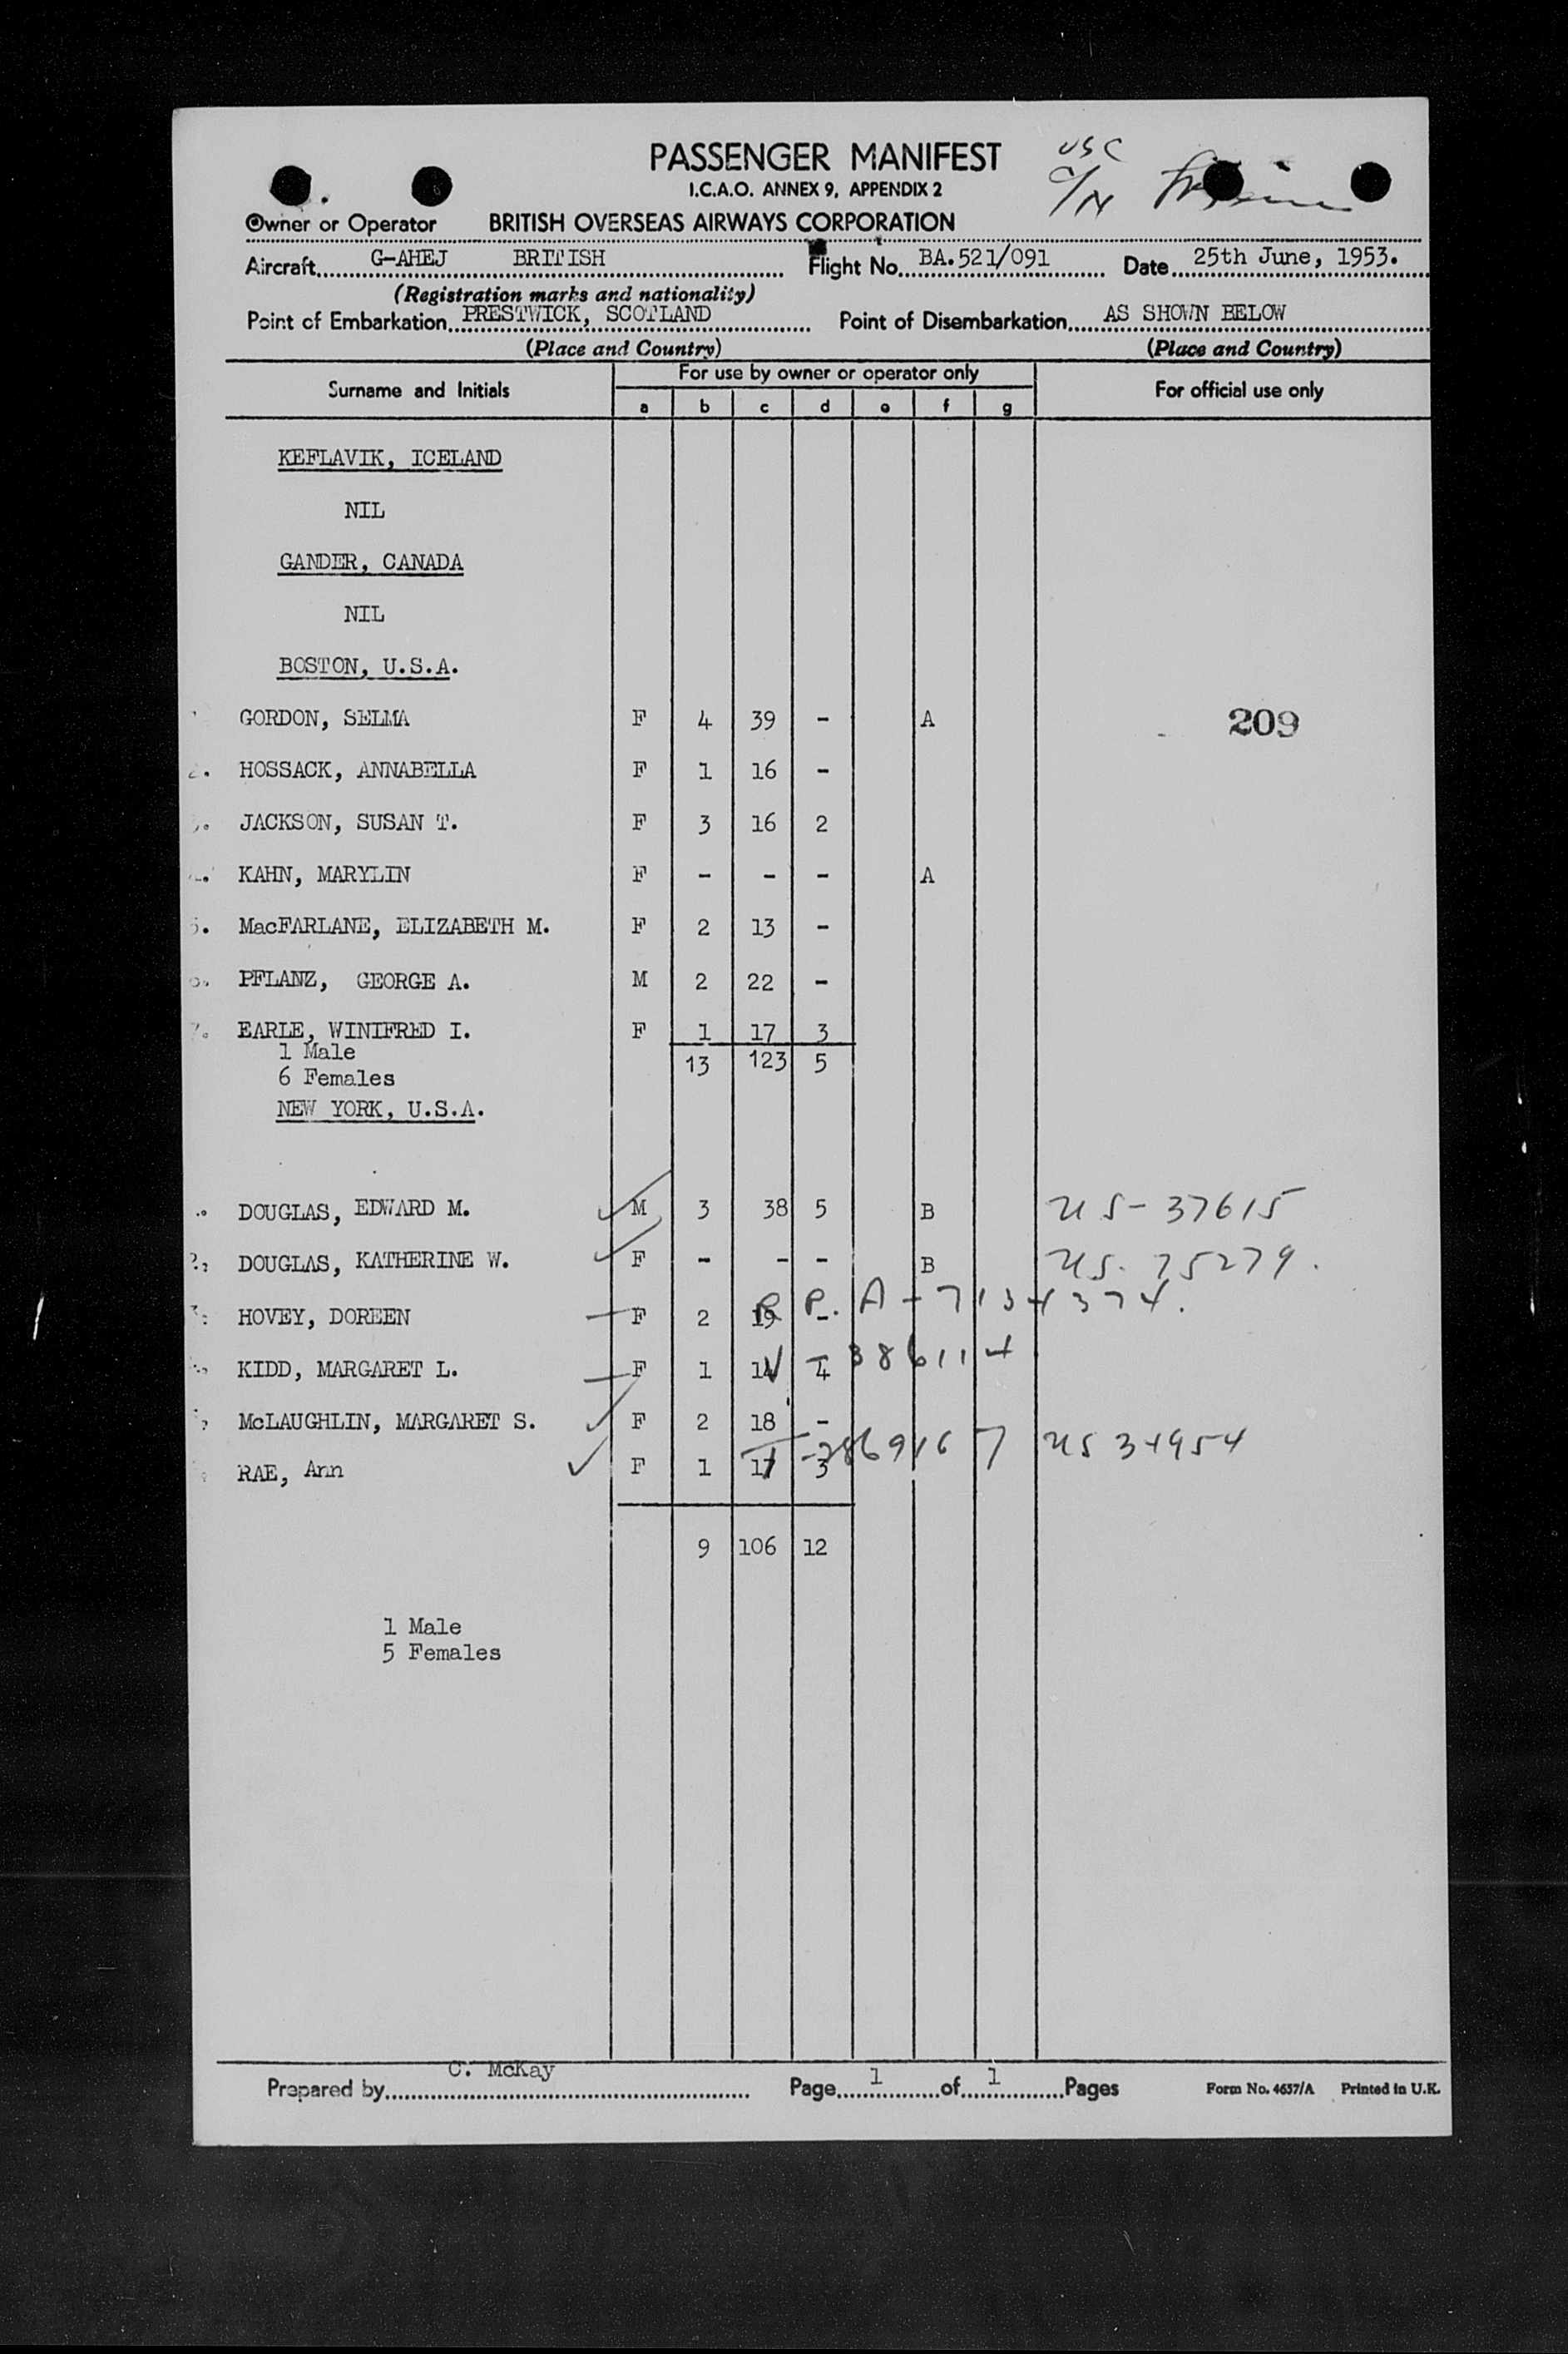 PASSENGER MANIFEST
USC
I.C.A.O. ANNEX 9, APPENDIX 2
Owner or Operator BRITISH OVERSEAS AIRWAYS CORPORATION
Aircraft G-AHEJ BRITISH Flight No. BA.521/091 Date 25th June, 1953.
(Registration marks and nationality)
Point of Embarkation PRESTWICK, SCOTLAND Point of Disembarkation AS SHOWN BELOW
(Place and Country) (Place and Country)
Surname and Initials For use by owner or operator only For official use only
a b c d e f g
KEFLAVIK, ICELAND
NIL
GANDER, CANADA
NIL
BOSTON, U.S.A.
GORDON, SELMA F 4 39 - A 209
2. HOSSACK, ANNABELLA F 1 16 -
JACKSON, SUSAN T. F 3 16 2
KAHN, MARYLIN F - - - A
5. MacFARLANE, ELIZABETH M. F 2 13 -
PFLANZ, GEORGE A. M 2 22 -
7. EARLE, WINIFRED I. F 1 17 3
1 Male
13 123 5
6 Females
NEW YORK, U.S.A.
DOUGLAS, EDWARD M. M 3 38 5 B US-37615
DOUGLAS, KATHERINE W. F - - - B US. 75279.
R P. A-7134374.
HOVEY, DOREEN F 2 19 -
V-386114
KIDD, MARGARET L. F 1 14 4
McLAUGHLIN, MARGARET S. F 2 18 -
-2869167 US 34954
RAE, Ann F 1 17 3
9 106 12
1 Male
5 Females
Prepared by C. McKay Page 1 of 1 Pages Form No. 4637/A Printed in U.K.